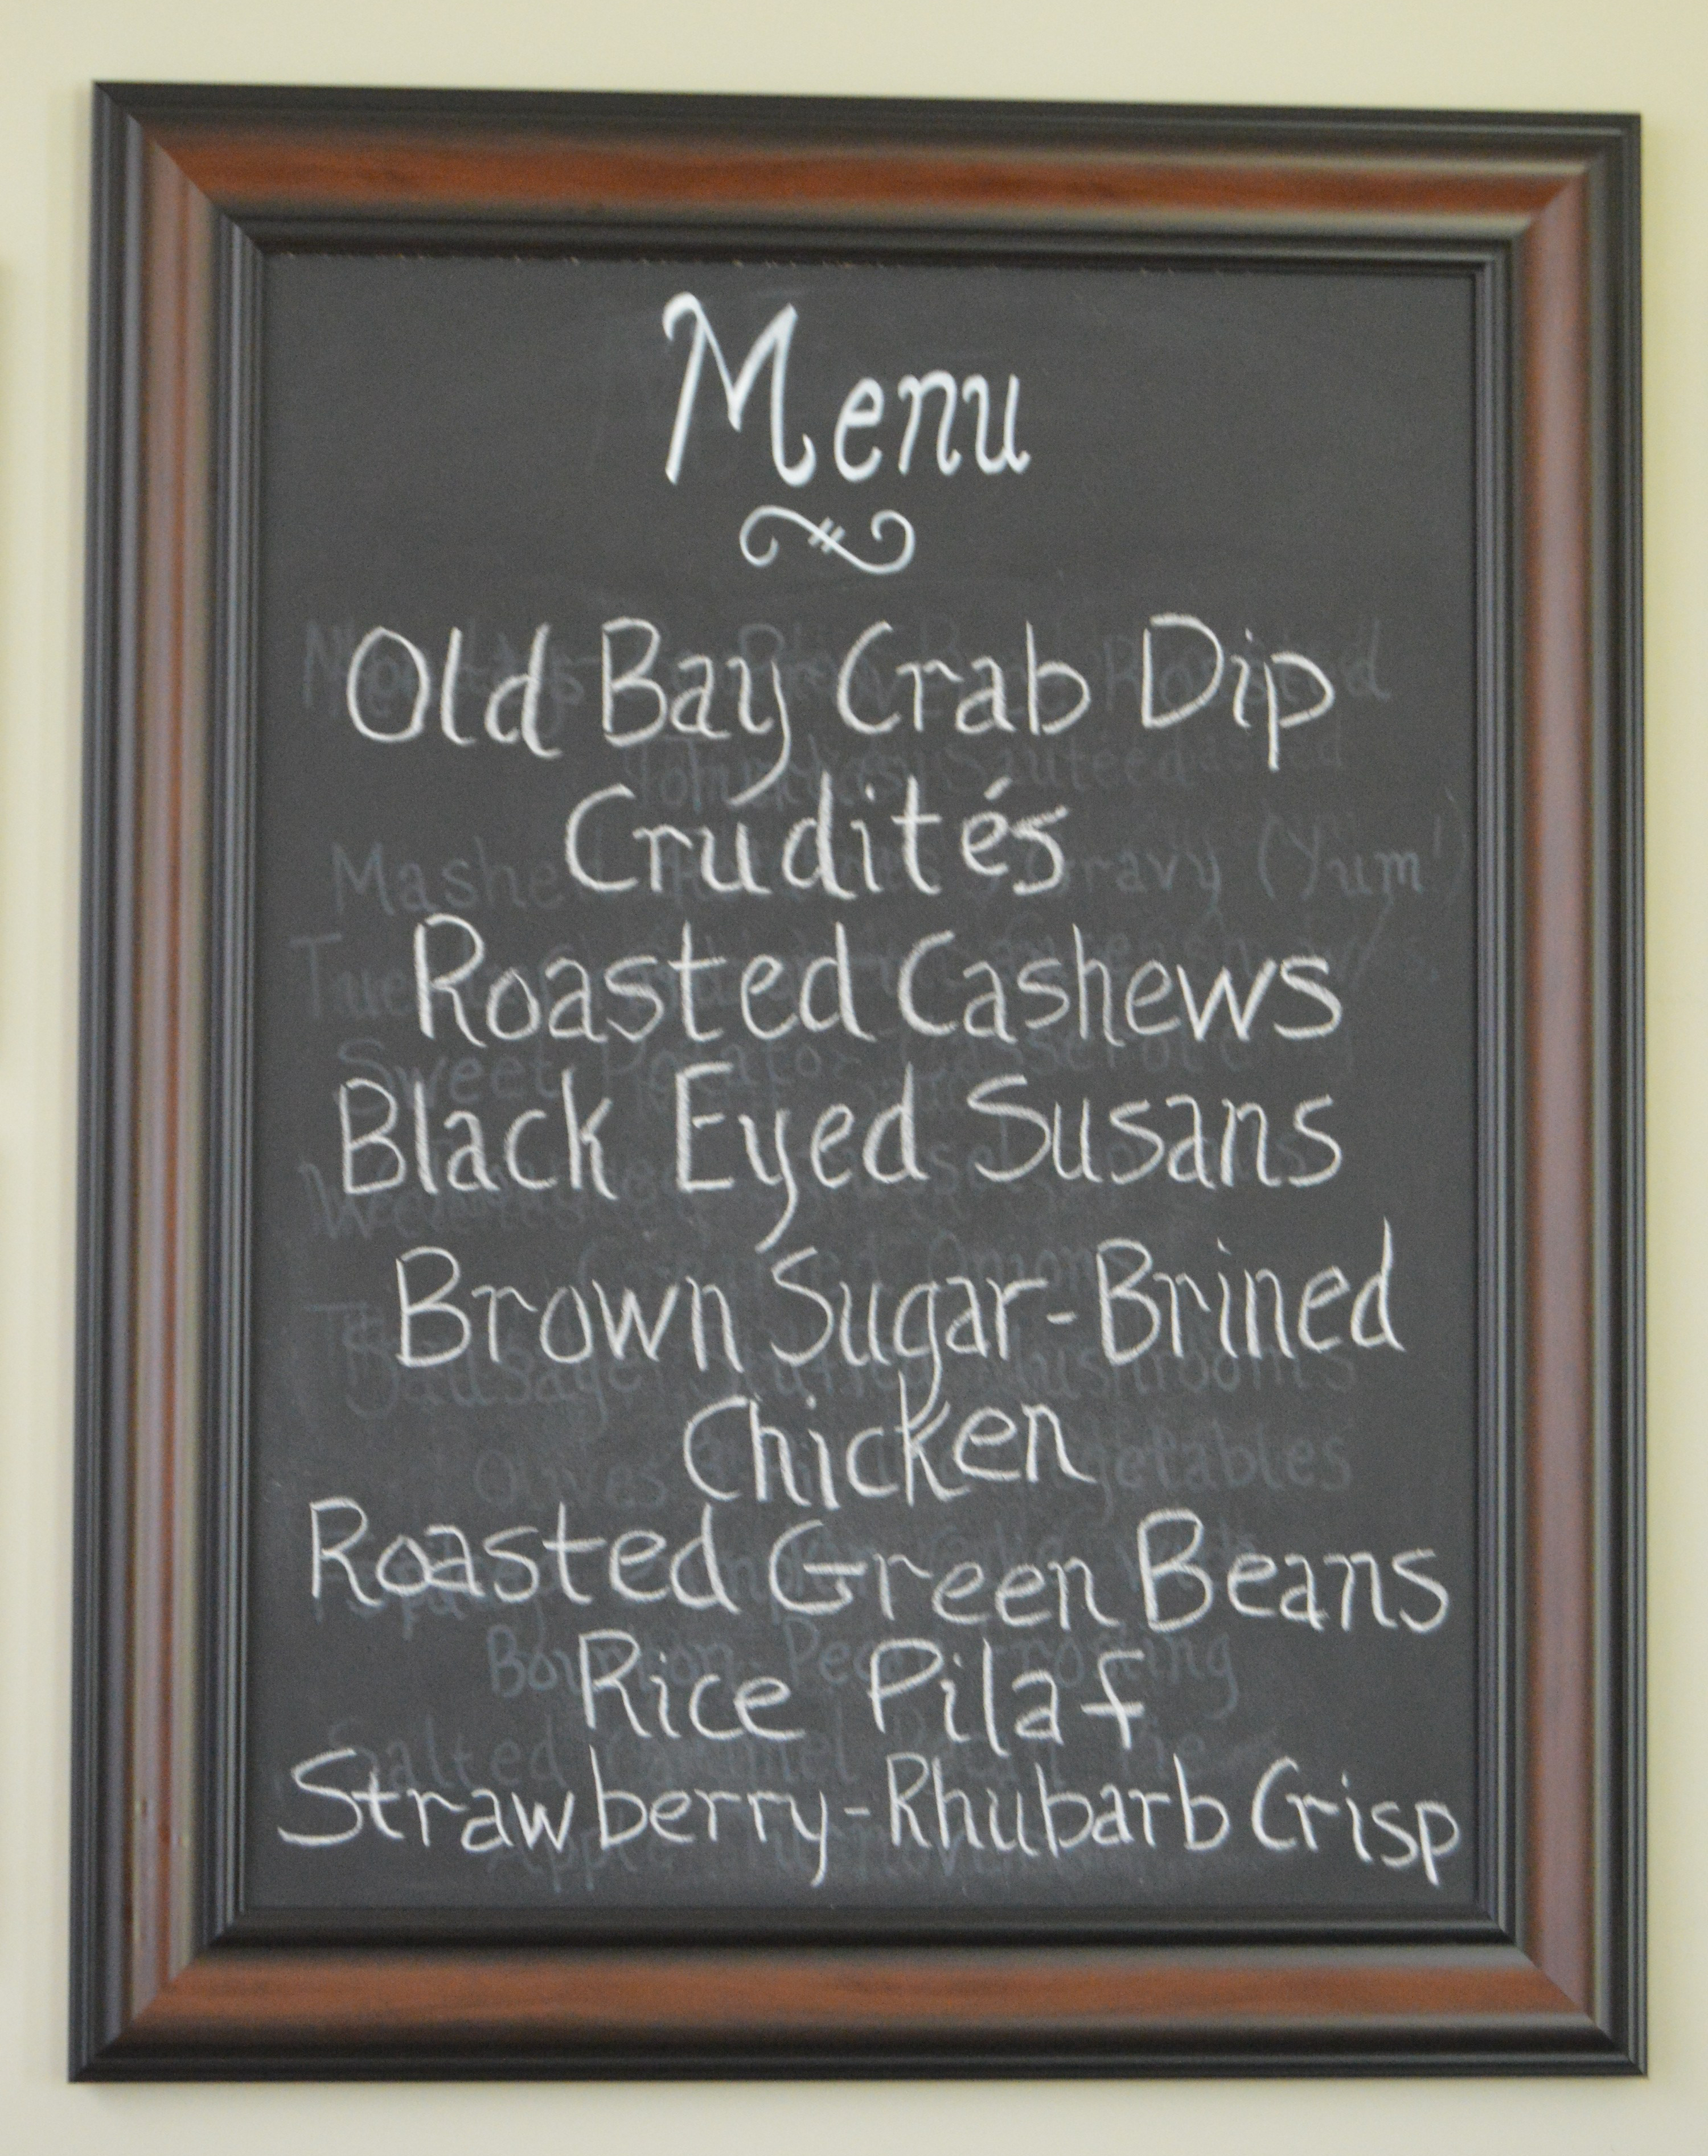 Menu
Old Bay Crab Dip
Crudités
Roasted Cashews
Black Eyed Susans
Brown Sugar-Brined
Chicken
Roasted Green Beans
Rice Pilaf
Strawberry-Rhubarb Crisp